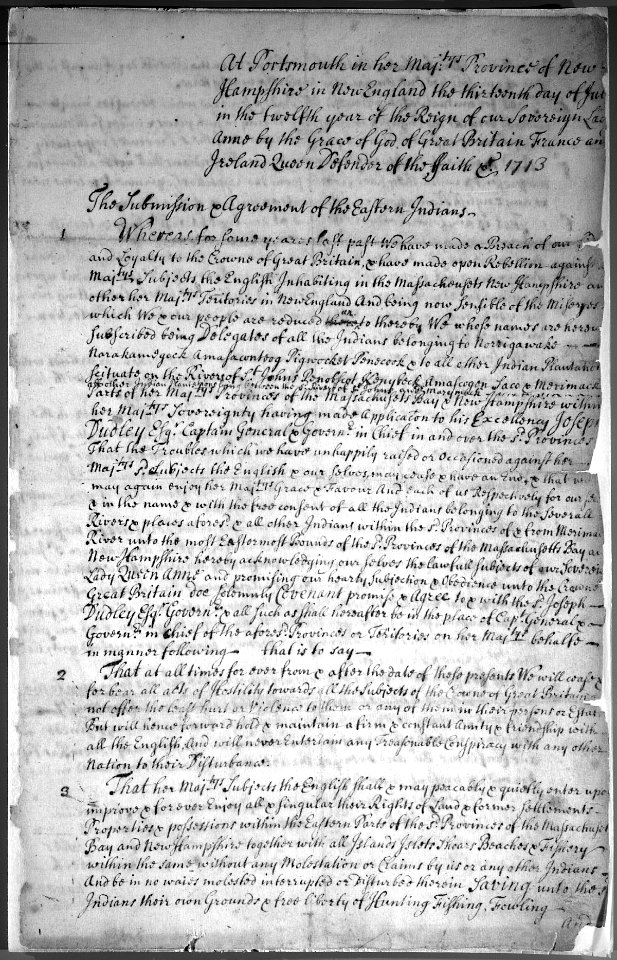 At Portsmouth in her Maj:tys Province of New
Hampshire in New England the thirteenth day of Jul
in the twelfth year of the Reign of our Sovereign Lad
Anne by the Grace of God of Great Britain France an
Ireland Queen Defender of the ffaith &c 1713
The Submission & Agreement of the Eastern Indians
1 Whereas for some years last past We have made a Breach of our
and Loyalty to the Crowne of Great Britain, & have made open Rebellion against
Maj:tys Subjects, the English Inhabiting in the Massachusets New Hampshire an
other her Maj:tys Teritories in New England And being now sensible of the Miseryes
which We & our people are reduced unto thereby We whose names are hereun
subscribed being Delegates of all the Indians belonging to Norrigawake
Narakamegock Amasacontoog Pigwocket Penecook & to all other Indian Plantations
scituate on the Rivers of St. Johns Penobscot Kenybeck Amascogen Saco & Merimack
Parts of her Maj:tys Provinces of the Massachusetts Bay & New Hampshire within
her Maj:tys Sovereignty having made Application to his Excellency Joseph
Dudley Esq:r Captain General & Govern:r in Chief in and over the s:d Provinces
That the Troubles which we have unhappily raised or occasioned against her
Maj:tys s:d Subjects the English & our selves may cease & have an End, & that we
may again enjoy her Maj:tys Grace & Favour And each of us Respectively for our se
& in the name & with the free consent of all the Indians belonging to the severall
Rivers & places afores:d & all other Indians within the s:d Provinces of & from Merimac
River unto the most Eastermost Bounds of the s:d Provinces of the Massachusetts Bay an
New Hampshire hereby acknowledging our selves the lawfull Subjects of our Soverein
Lady Queen Anne and promising our hearty Subjection & Obedience unto the Crowne
Great Britain doe solemnly Covenant promise & Agree to & with the s:d Joseph
Dudley Esq:r Govern:r & all such as shall hereafter be in the place of Cap:t General &
Govern:r in Chief of the afores:d Provinces or Teritories on her Maj:tys behalfe
in manner following that is to say
2 That at all times for ever from & after the date of these presents We will cease &
for bear all acts of Hostility towards all the Subjects of the Crowne of Great Britain
not offer the least hurt or Violence to them or any of them in their persons or Estat
But will hence forward hold & maintain a firm & constant Amity & friendship with
all the English, And will never Entertain any Treasonable Conspiracy with any other
Nation to their Disturbance
3 That her Maj:tys Subjects the English shall & may peacably & quietly enter upon
improve & for ever Enjoy all & singular their Rights of Land & former settlements
Properties & possessions within the Eastern Parts of the s:d Provinces of the Massachuset
Bay and New Hampshire together with all Islands Islets Shoars Beaches & Fishery
within the same without any Molestation or Claims by us or any other Indians
And be in no waies molested interrupted or disturbed therein Saving unto the s
Indians their own Grounds & free liberty of Hunting Fishing, Fowling
And